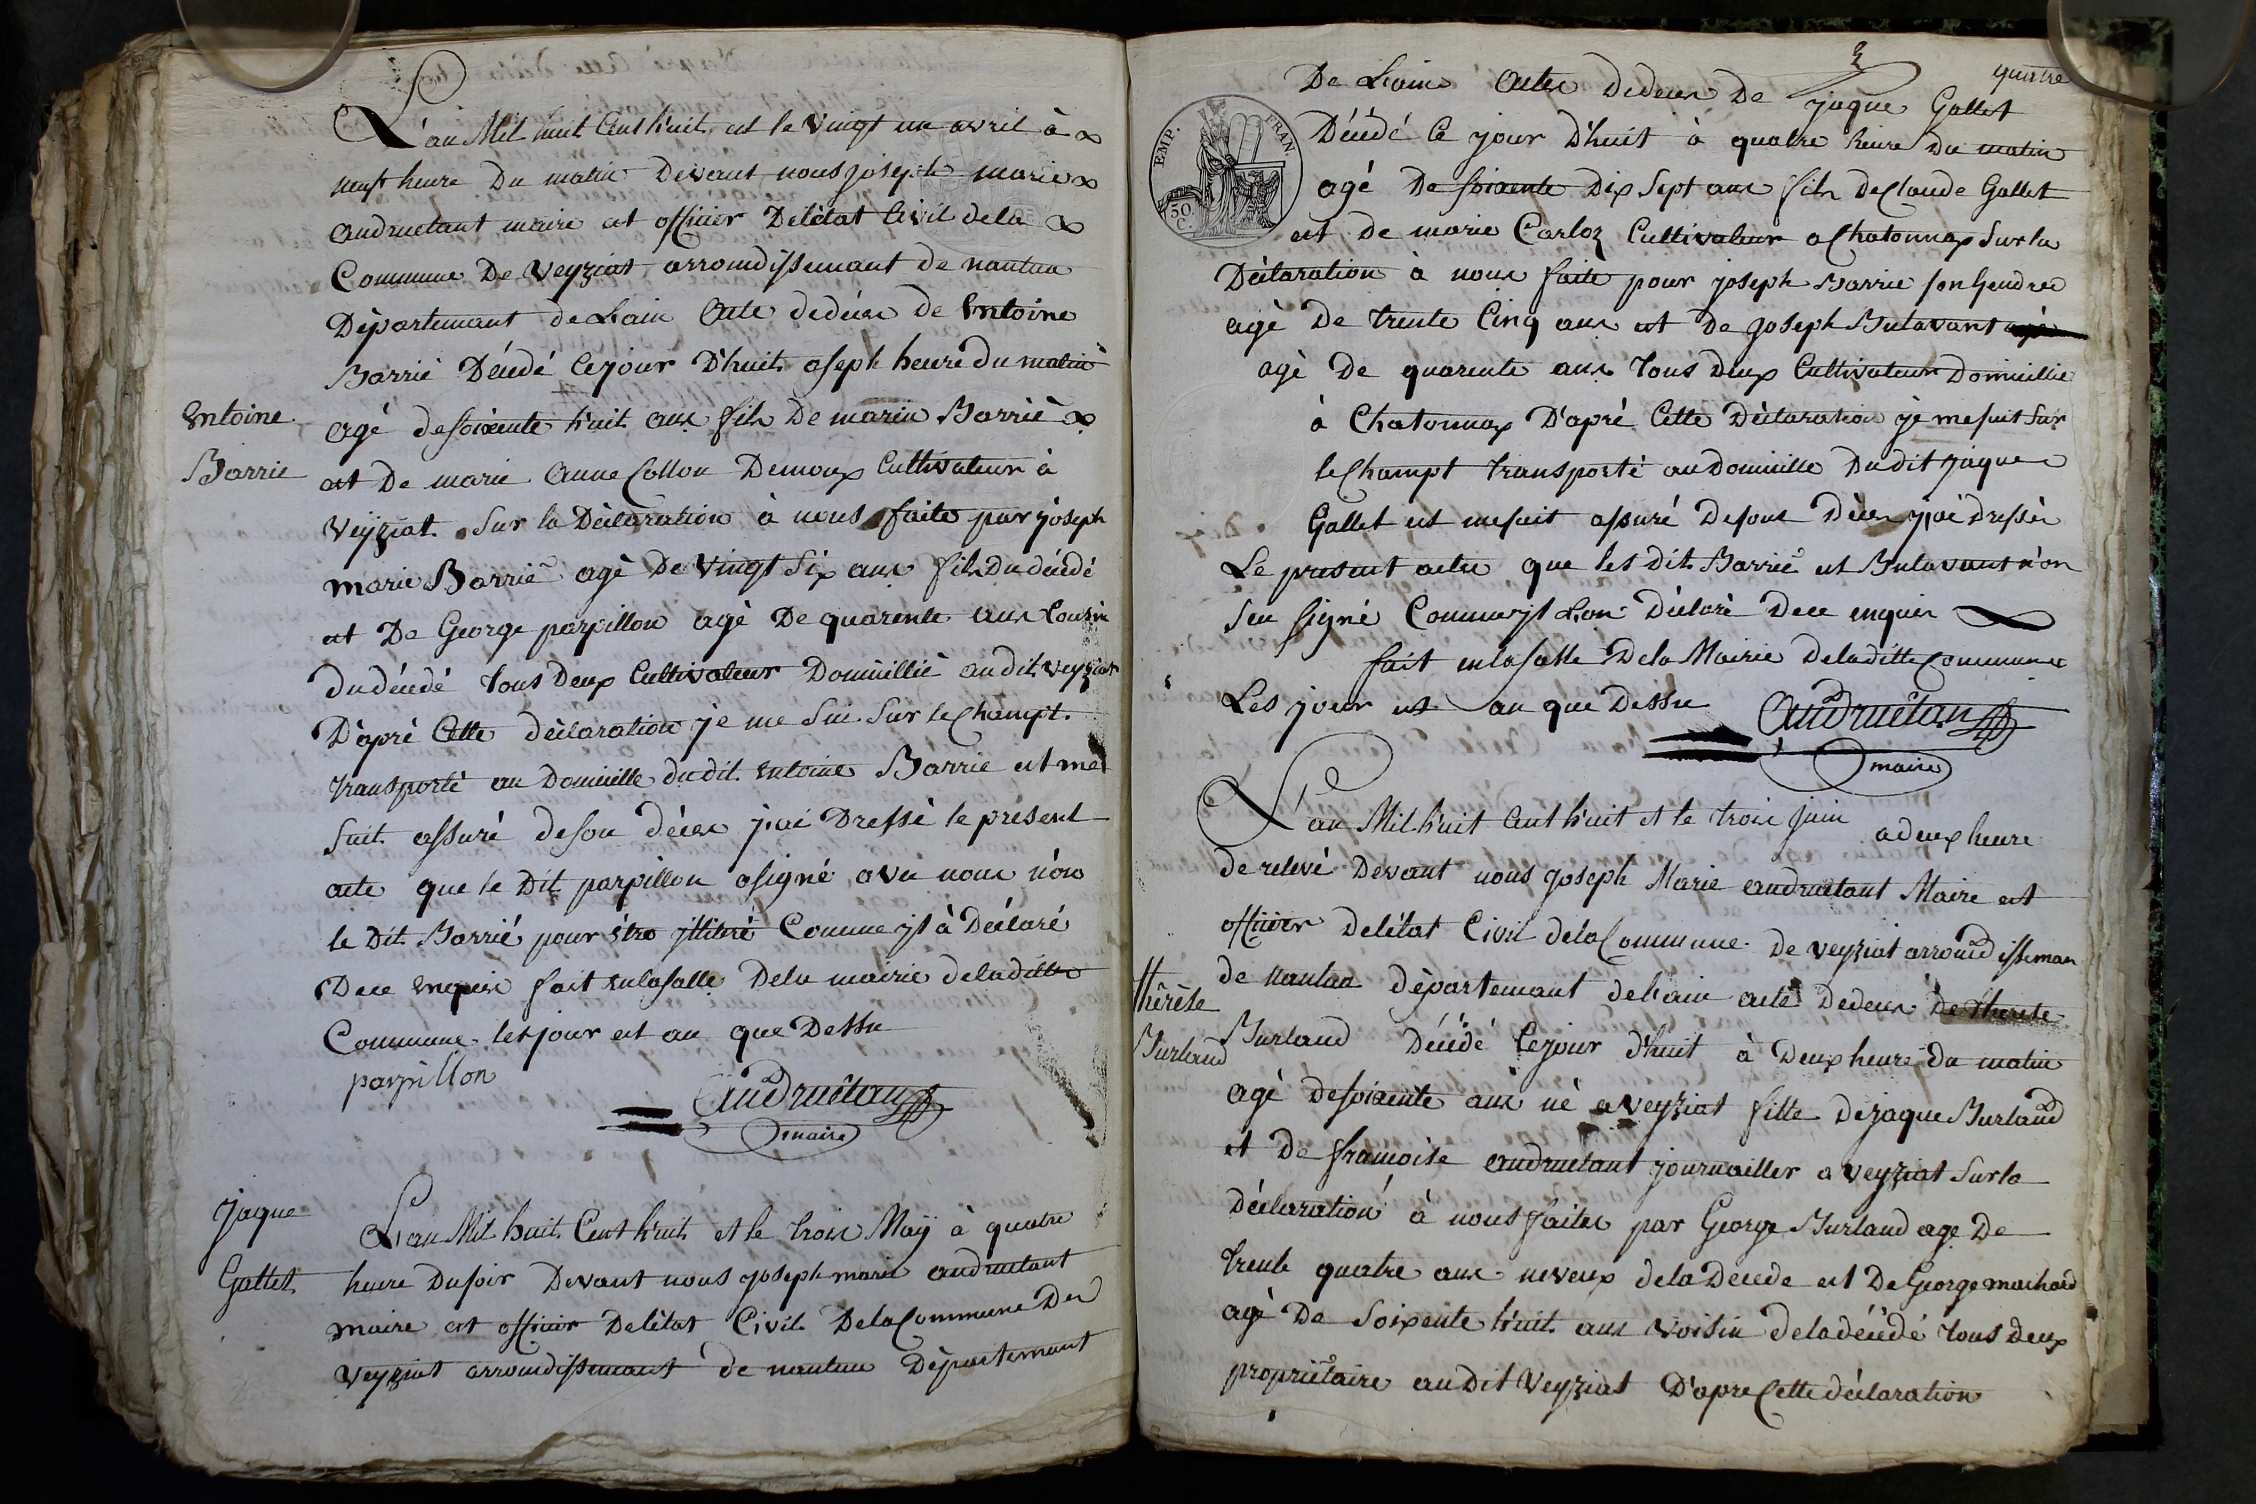 L'an Mil huit Cent huit et le vingt un avril à
neuf heure Du matin Devant nous joseph marie
andruetant maire et officier De létat Civil dela
Commune De Veyziat arroundissemant de nantua
Dèpartemant deLain Acte dedécex de Entoine
Barrié Dècedé Cejour D'huit aseph heure du matin
Entoine
Barrie
agé desoixente huit anx fils De marin Barriè
et De marie Anne Collon Demoux Cultivateur à
Veÿziat Sur la Dèclaration à nous faite par joseph
marie Barriè agè De vingt Six anx fils Du décedé
et De George parpillon agè De quarente anx Cousin
du décedé tous Deux Cultivateur Domicillié audit veyziat
D'aprè Cette dèclaration je me Sui Sur leChampt
transportè au Domicille dudit entoine Barrie et me
Suit assuré deson décex j'ai Dressé le present
acte que le Dit parpillon asigné avec noux nón
le Dit Barrié pour étre jllitéré Comme jl à Déclaré
Dece enquix fait enlasalle Dela mairie deladitte
Commune lesjour et an que Dessu
parpillon
andruétan
maire
jaque
Gallet
L'an Mil huit Cent huit et le troix Maÿ à quatre
heure Dusoir Devant nous joseph marie andruetant
maire et officier Delétat Civil Dela Commune De
Veyziat arroundissemant de nantua Dèpartemant
3
quatre
EMP. FRAN.
50. C.
De Lain Acte Dedecex De jaque Gallet
Décédé Ce jour D'huit à quatre heure Du matin
agé De soixente Dix Sept anx fils deClaude Gallet
et De marie Carloz Cultivateur a Chatonnax Sur la
Dèclaration à nous faite pour joseph Barrie son Gendre
agè De trente Cinq anx et De joseph Bulavant
agè De quarente anx tous Deux Cultivateur Domicillie
à Chatonnax D'aprè Cette Dèclaration je mesuit Sur
leChampt transportè au Domicille Dudit jaque
Gallet et mesuit assuré Deson Dècex j'ai dressée
Le present acte que les Dit Barrié et Bulavant n'on
Seu signé Comme jl Lon Dèclarè Dece enquix
fait enlasalle Dela Mairie deladitte Commune
Les jour et an que Dessu
andruétan
maire
L'an Mil huit Cent huit et le troix juin a deux heure
de relevé Devant nous joseph Marie andruetant Maire et
officier Delétat Civil déla Commune de veyziat arroundisseman
thèrèse
Burland
de nantua dèpartemant delain acte Dedecex de therese
Burland Décédé Cejour d'huit à Deux heure du matin
agé desoixente anx né aveyziat fille dejaque Burland
et De framoise andruetant journailler a veyziat Sur la
Déclaration à nous faite par George Burland age De
trente quatre anx neveux dela Decede et De George machard
agè De Soixente huit anx voisin deladécedé tous deux
propriétaire audit Veyziat D'apre Cette déclaration